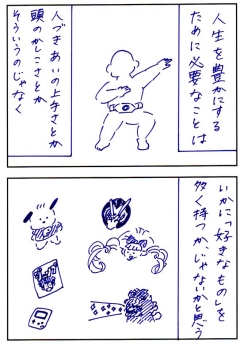 人生を豊かにする
ために必要なことは
人づきあいの上手さとか
頭のかしこさとか
そういうのじゃなく
いかに「好きなもの」を
多く持つか、じゃないかと思う